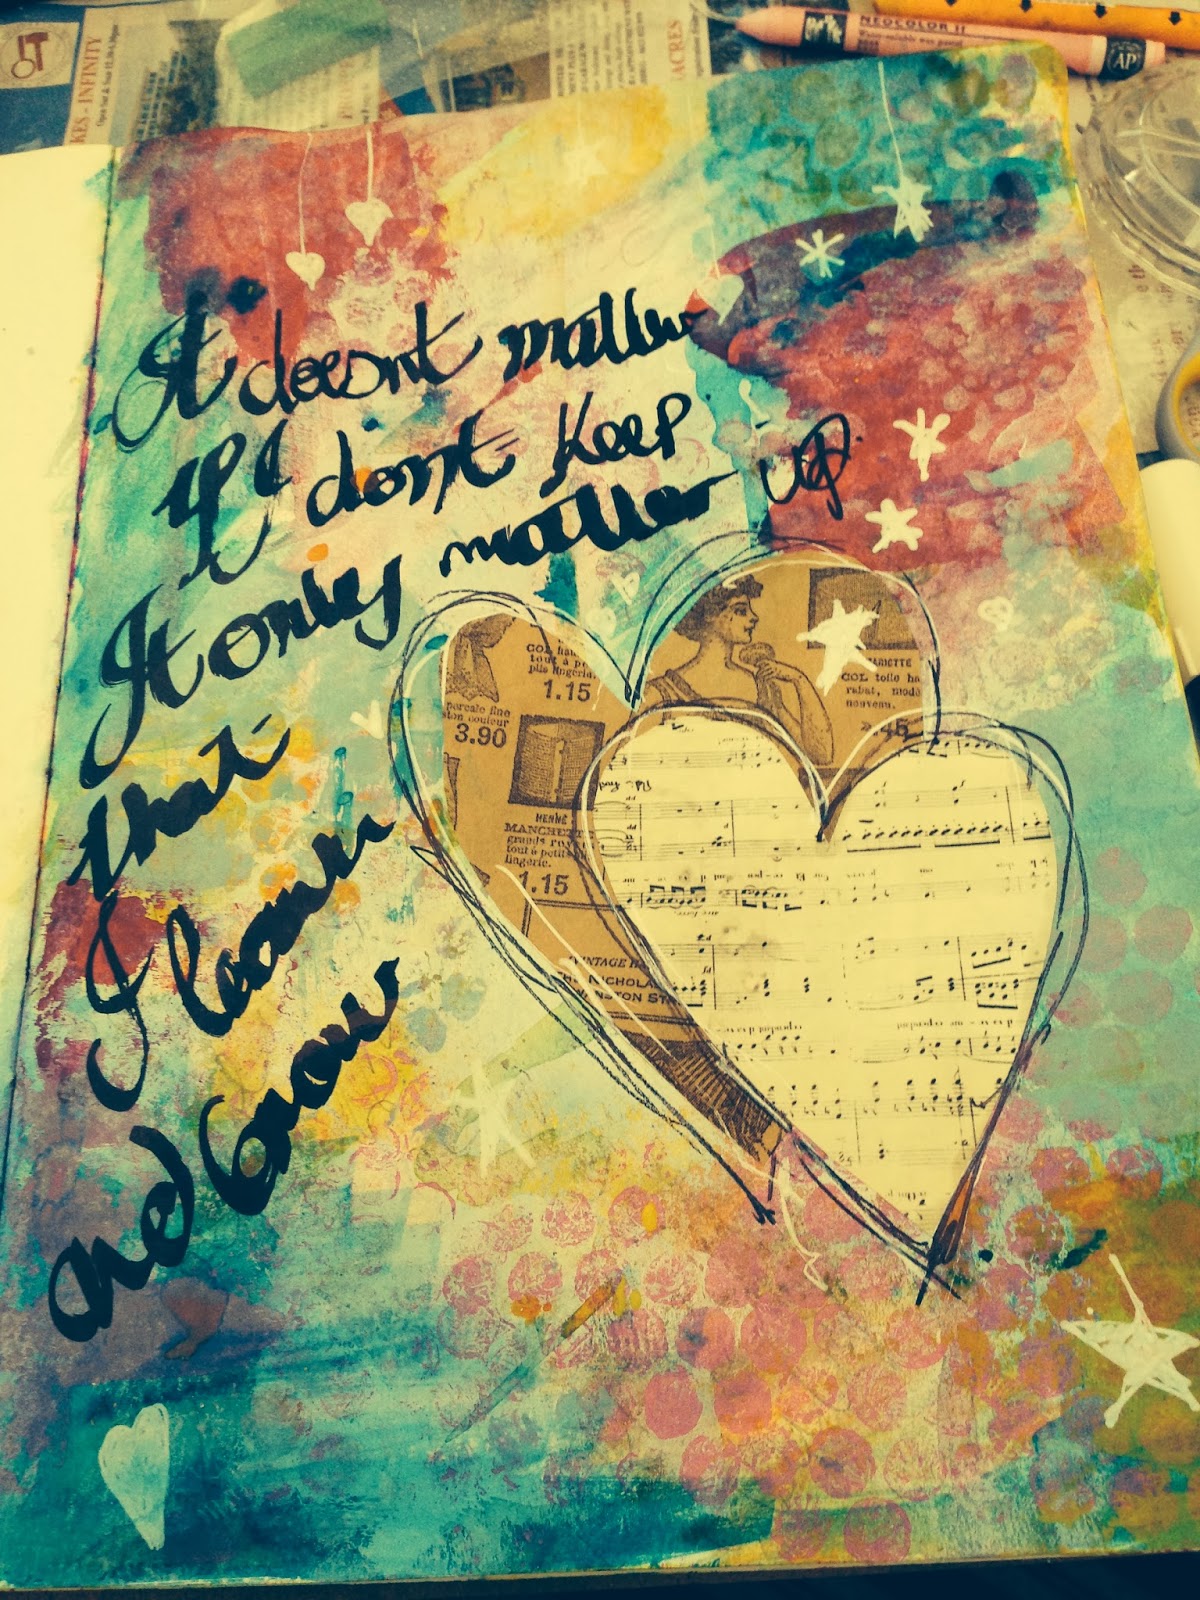 KES - INFINITY
ACRES
NEOCOLOR II
AP
It doesnt matter
If I dont Keep
UP.
It only matter
that
I learn
and Grow
COL
tout à p
plis lingerie.
1.15
percale fine
ton couleur
3.90
MANCHETTE
tout à petits
lingerie.
1.15
COL toile ha
rabat, modè
nouveau.
.45
VINTAGE
NICHOLA
WINSTON ST